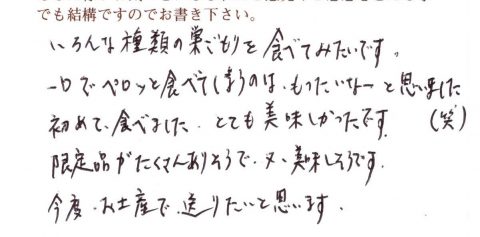 でも結構ですのでお書き下さい。
いろんな種類の巣ごもりを食べてみたいです。
一口でペロッと食べてしまうのは、もったいなーと思いました
初めて、食べました。とても美味しかったです。(笑)
限定品がたくさんありそうで、又、美味しそうです。
今度、お土産で、送りたいと思います。